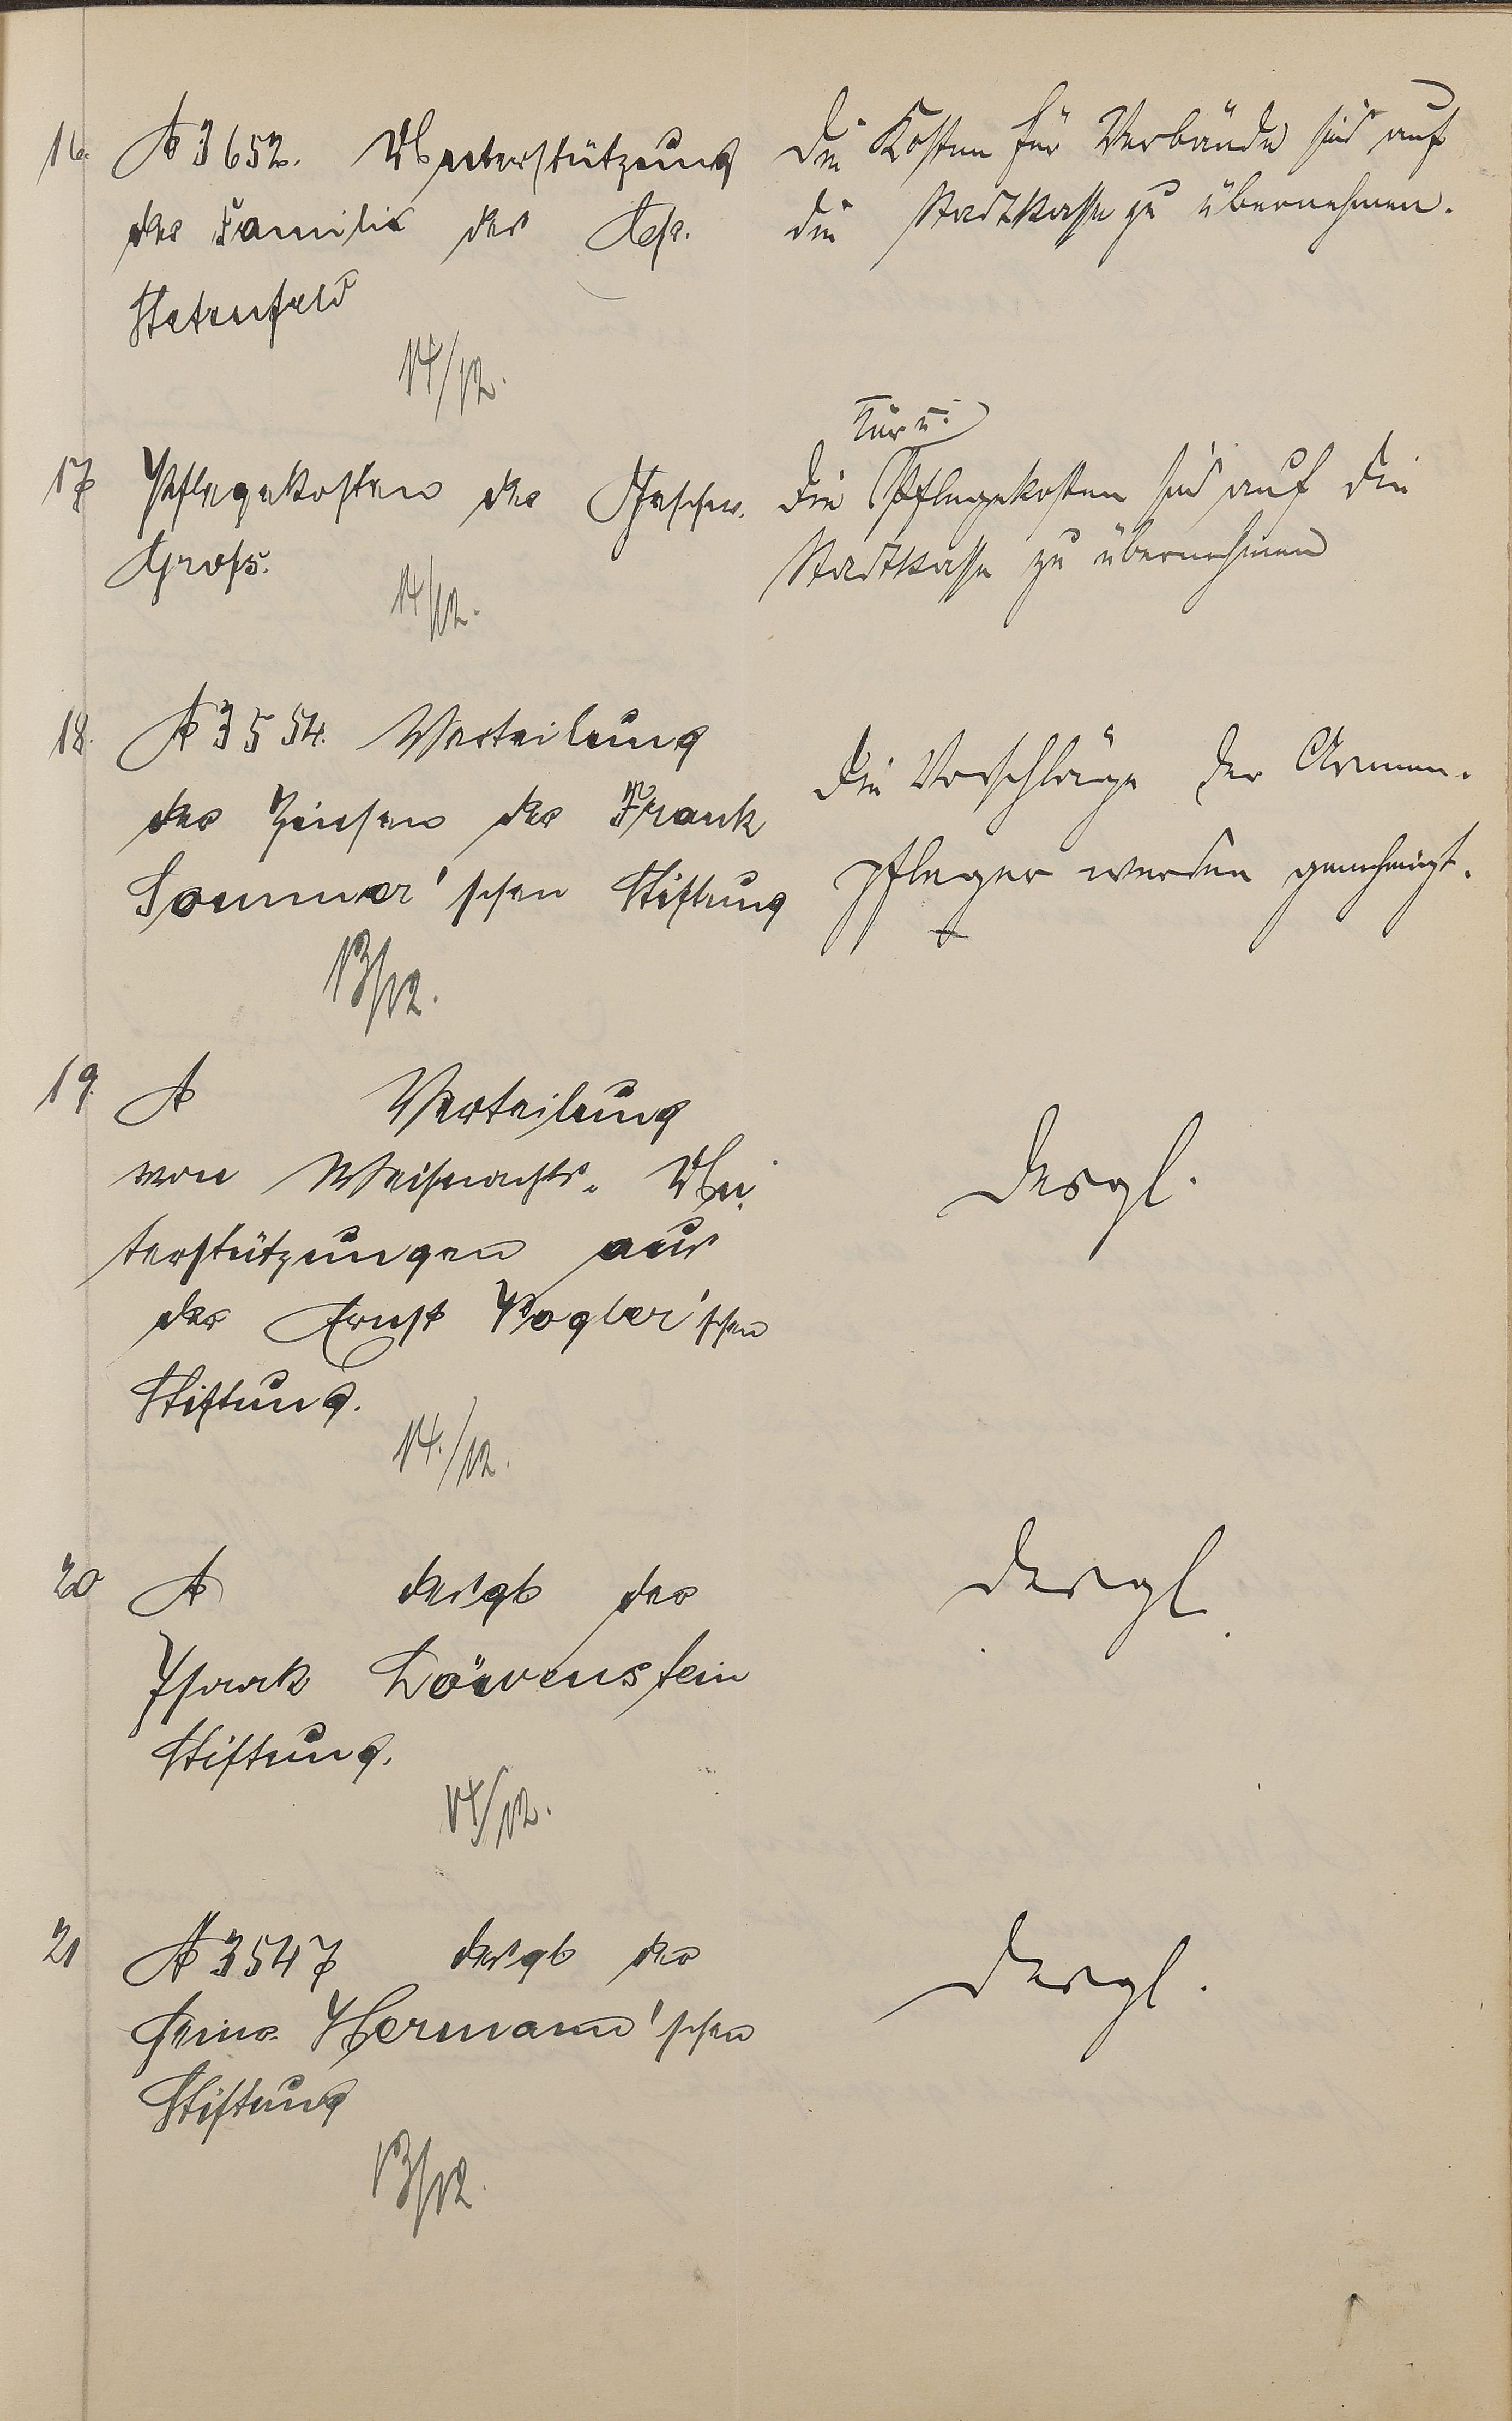 16. A 3652. Unterstützung
der Familie des Chr.
Stetenfeld
14/12.
Die Kosten für Verbände sind auf
die Stadtkasse zu übernehmen.
17 Pflegekosten der Geschw.
Groß.
14/12.
Kur u.
Die Pflegekosten sind auf die
Stadtkasse zu übernehmen
18. A 3554. Verteilung
der Zinsen der Frank
Sommer'schen Stiftung
13/12.
Die Vorschläge der Armen-
pfleger werden genehmigt.
19. A Verteilung
von Weihnachts- Un-
terstützungen aus
der Ernst Vogler'schen
Stiftung.
14./12.
Desgl.
20 A desgl der
Isaak Löwenstein
Stiftung.
14/12.
Desgl.
21 A 3547 desgl der
Hermann'schen
Stiftung
13/12.
Desgl.